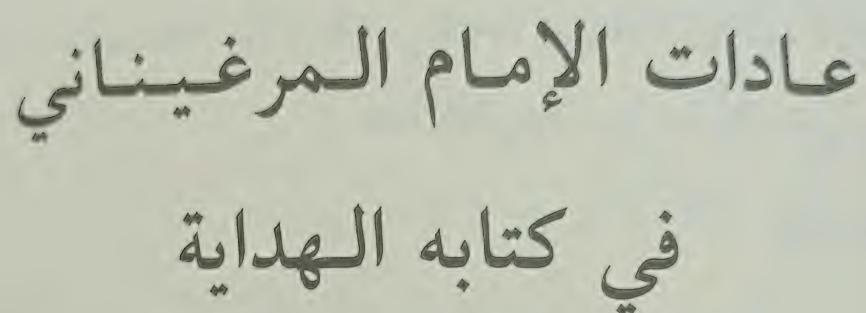 عادات الإمام المرغيناني
في كتابه الهداية